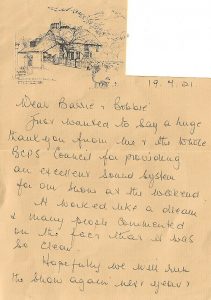 19.9.01
Dear Barrie & Bobbie
Just wanted to say a huge
thankyou from me & the whole
BCPS Council for providing
an excellent sound system
for our show at the weekend.
It worked like a dream
& many people commented
on the fact that it was
so clear.
Hopefully we will run
the show again next year &